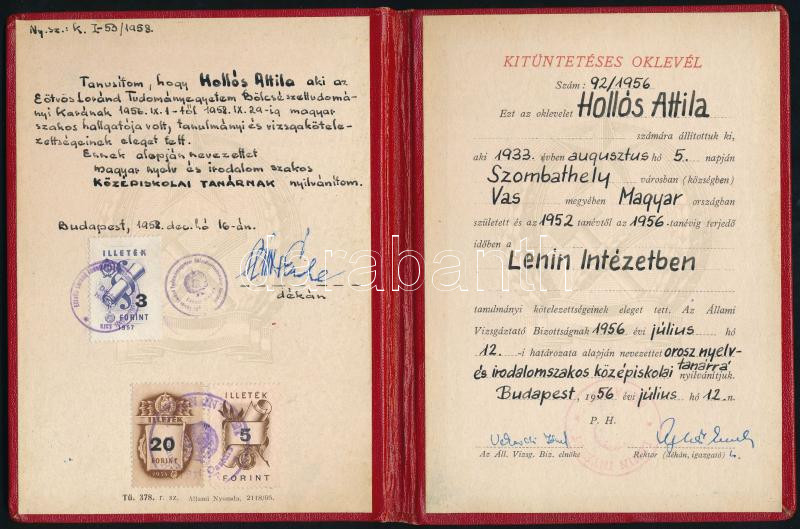 Ny.sz.: K. I-53/1958.
Tanusítom, hogy Hollós Attila aki az
Eötvös Loránd Tudományegyetem Bölcsészettudomá-
nyi Karának 1956.IX.1-től 1958.IX.29-ig magyar
szakos hallgatója volt, tanulmányi és vizsgakötele-
zettségeinek eleget tett.
Ennek alapján nevezettet
magyar nyelv és irodalom szakos
KÖZÉPISKOLAI TANÁRNAK nyilvánítom.
Budapest, 1958. dec. hó 16-án.
dékán
ILLETÉK
3
FORINT
1957
ILLETÉK
20
FORINT
ILLETÉK
5
FORINT
Tű. 378. r. sz. Állami Nyomda, 2118/05.
KITÜNTETÉSES OKLEVÉL
Szám: 92/1956
Ezt az oklevelet Hollós Attila
számára állítottuk ki,
aki 1933. évben augusztus hó 5. napján
Szombathely városban (községben)
Vas megyében Magyar országban
született és az 1952 tanévtől az 1956-tanévig terjedő
időben a
Lenin Intézetben
tanulmányi kötelezettségeinek eleget tett. Az Állami
Vizsgáztató Bizottságnak 1956 évi július hó
12.-i határozata alapján nevezettet orosz nyelv-
és irodalomszakos középiskolai tanárrá nyilvánítjuk.
Budapest, 1956 évi július hó 12.n.
P. H.
Az Áll. Vizsg. Biz. elnöke
Rektor (dékán, igazgató) h.
darabanth